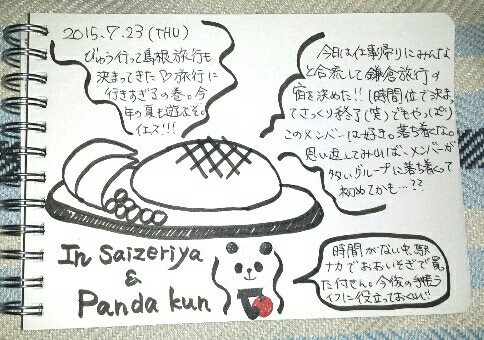 2015.7.23(THU)
びゅう行って島根旅行も
決まってきた 旅行に
行きすぎるの巻。今
年の夏も遊ぶぞ。
イエス!!!
今日は仕事帰りにみんな
と合流して鎌倉旅行の
宿を決めた!!1時間位で決まっ
てさっくり終了(笑)でもやっぱり
このメンバーは好き。落ち着くな。
思い返してみれば、メンバーが
少ないグループに落ち着くって
初めてかも…??
In Saizeriya
&
Panda kun
時間がない中、駅
ナカでおおいそぎで買っ
た付せん。今後の手帳ラ
イフに役立っておくれ!!